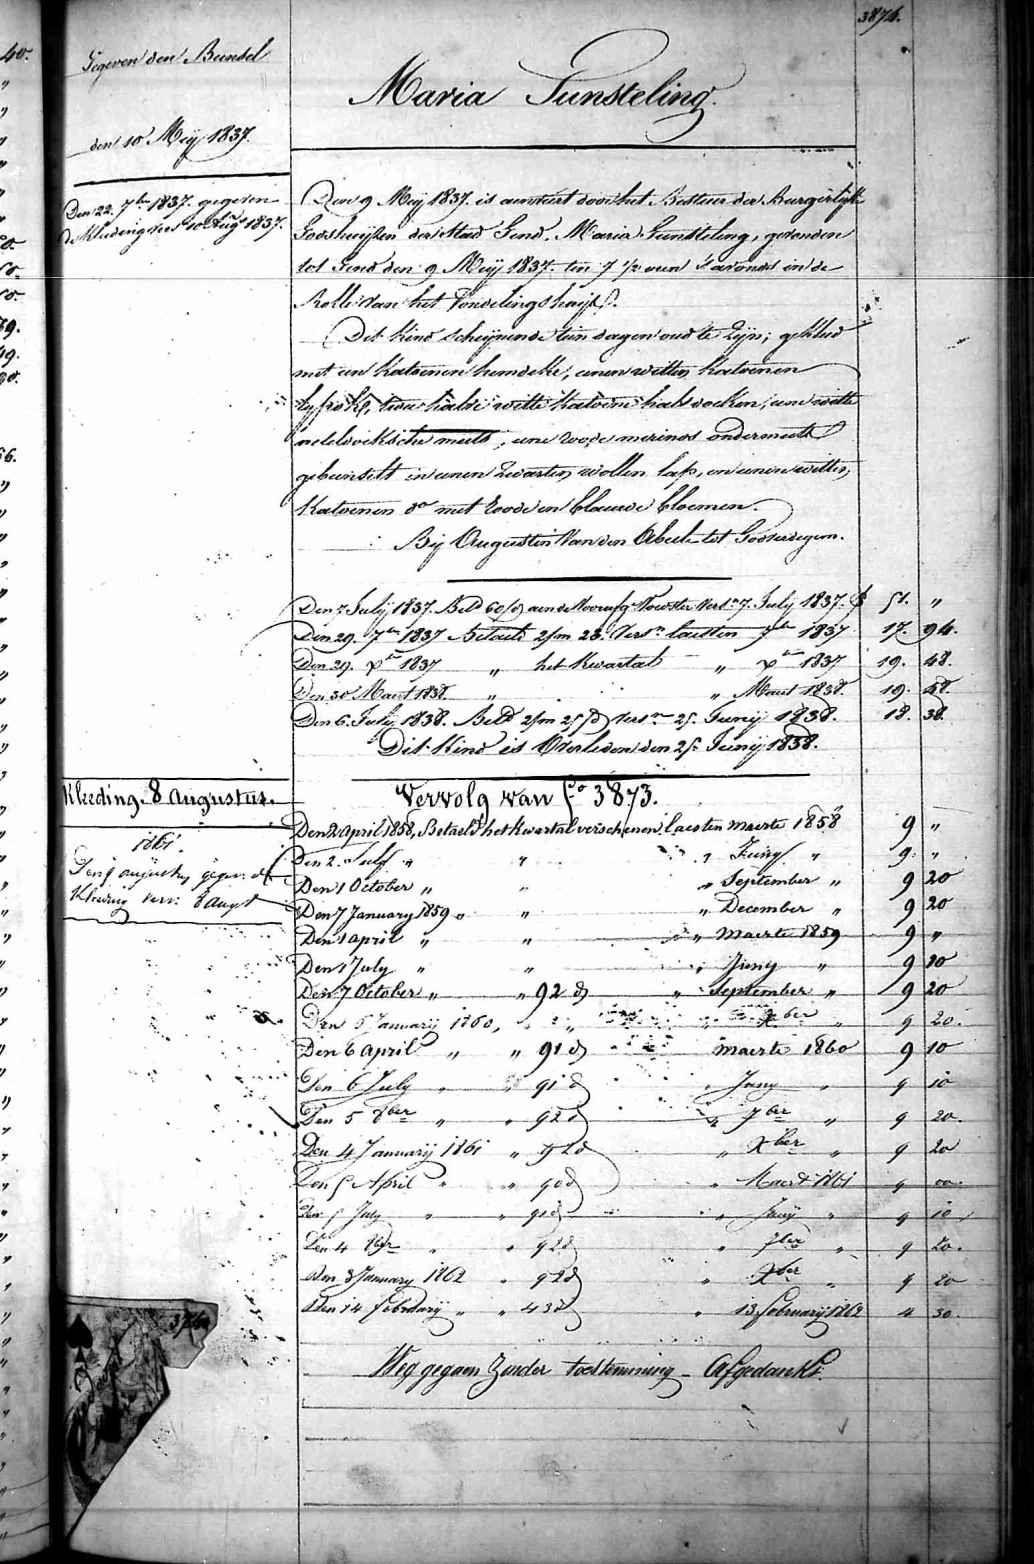 3874.
Gegeven den Bundel
den 10 Meij 1837.
Den 22. 7ber 1837. gegeven
de Kleeding vers. 10 Augt 1837.
Maria Sunsteling.
Den 9 Meij 1837. is aenveert door het Bestuer der Burgerlijke
Godshuijsen der Stad Gend, Maria Sunsteling, gevonden
tot Gend den 9 Meij 1837. ten 7 1/2 uren s'avonds in de
Rolle van het Vondelingshuijs.
Dit Kind scheijnende tien dagen oud te zijn; gekleed
met een Katoenen hemdeke, eenen witten Katoenen
twee halve witte Katoene halsdoeken, eene witte
neteldoeksche muts, eene roode merinos ondermuts
gebunselt in eenen zwarten wollen lap, en eenen witten
Katoenen do met roode en blauwe bloemen.
Bij Augustin Van den Abeele tot Goosverdegem.
Den 7 Julij 1837. Beld 60/d aen de Voorafge Voedster vers. 7. Julij 1837. f 51. "
Den 29. 7ber 1837 Betaeld 2/m 23. vers. laesten 7ber 1837 17. 94.
Den 29. Xber 1837 " het Kwartal " Xber 1837 19. 48.
Den 30 Maert 1838. " " Maert 1838. 19. 58.
Den 6. Julij 1838. Beld 2/m 25/d vers. 25. Junij 1838. 18. 38.
Dit Kind is Overleden den 25 Junij 1838.
Kleeding 8 Augustus.
1861.
Den 9 augustus gegeven de
Kleeding vers: 8 Augt
Vervolg van fo 3873.
Den 2 april 1858, Betaeld het Kwartal verschenen laesten maerte 1858 9 "
Den 2 July " " " Juny " 9 "
Den 1 October " " " September " 9 20
Den 7 January 1859 " " " December " 9 20
Den 1 april " " " maerte 1859 9 "
Den 1 July " " " Juny " 9 10
Den 7 October " " 92 d " September " 9 20
Den 6 January 1860, " " " Xber " 9 20.
Den 6 april " " 91 d maerte 1860 9 10
Den 6 July " " 91 d " Juny " 9 10
Den 5 8ber " " 92 d " 7ber " 9 20
Den 4 Januarij 1861 " 92 d " Xber " 9 20
Den 5 April " " 90 d " Maert 1861 9 00.
Den 5 July " " 91 d " Junij " 9 10
Den 4 8ber " " 92 d " 7ber " 9 20.
Den 3 January 1862 " 92 d " Xber " 9 20
Den 14 february " " 43 d " 13 february 1862 4 30.
Weg gegaen zonder toestemming - Afgedankt.